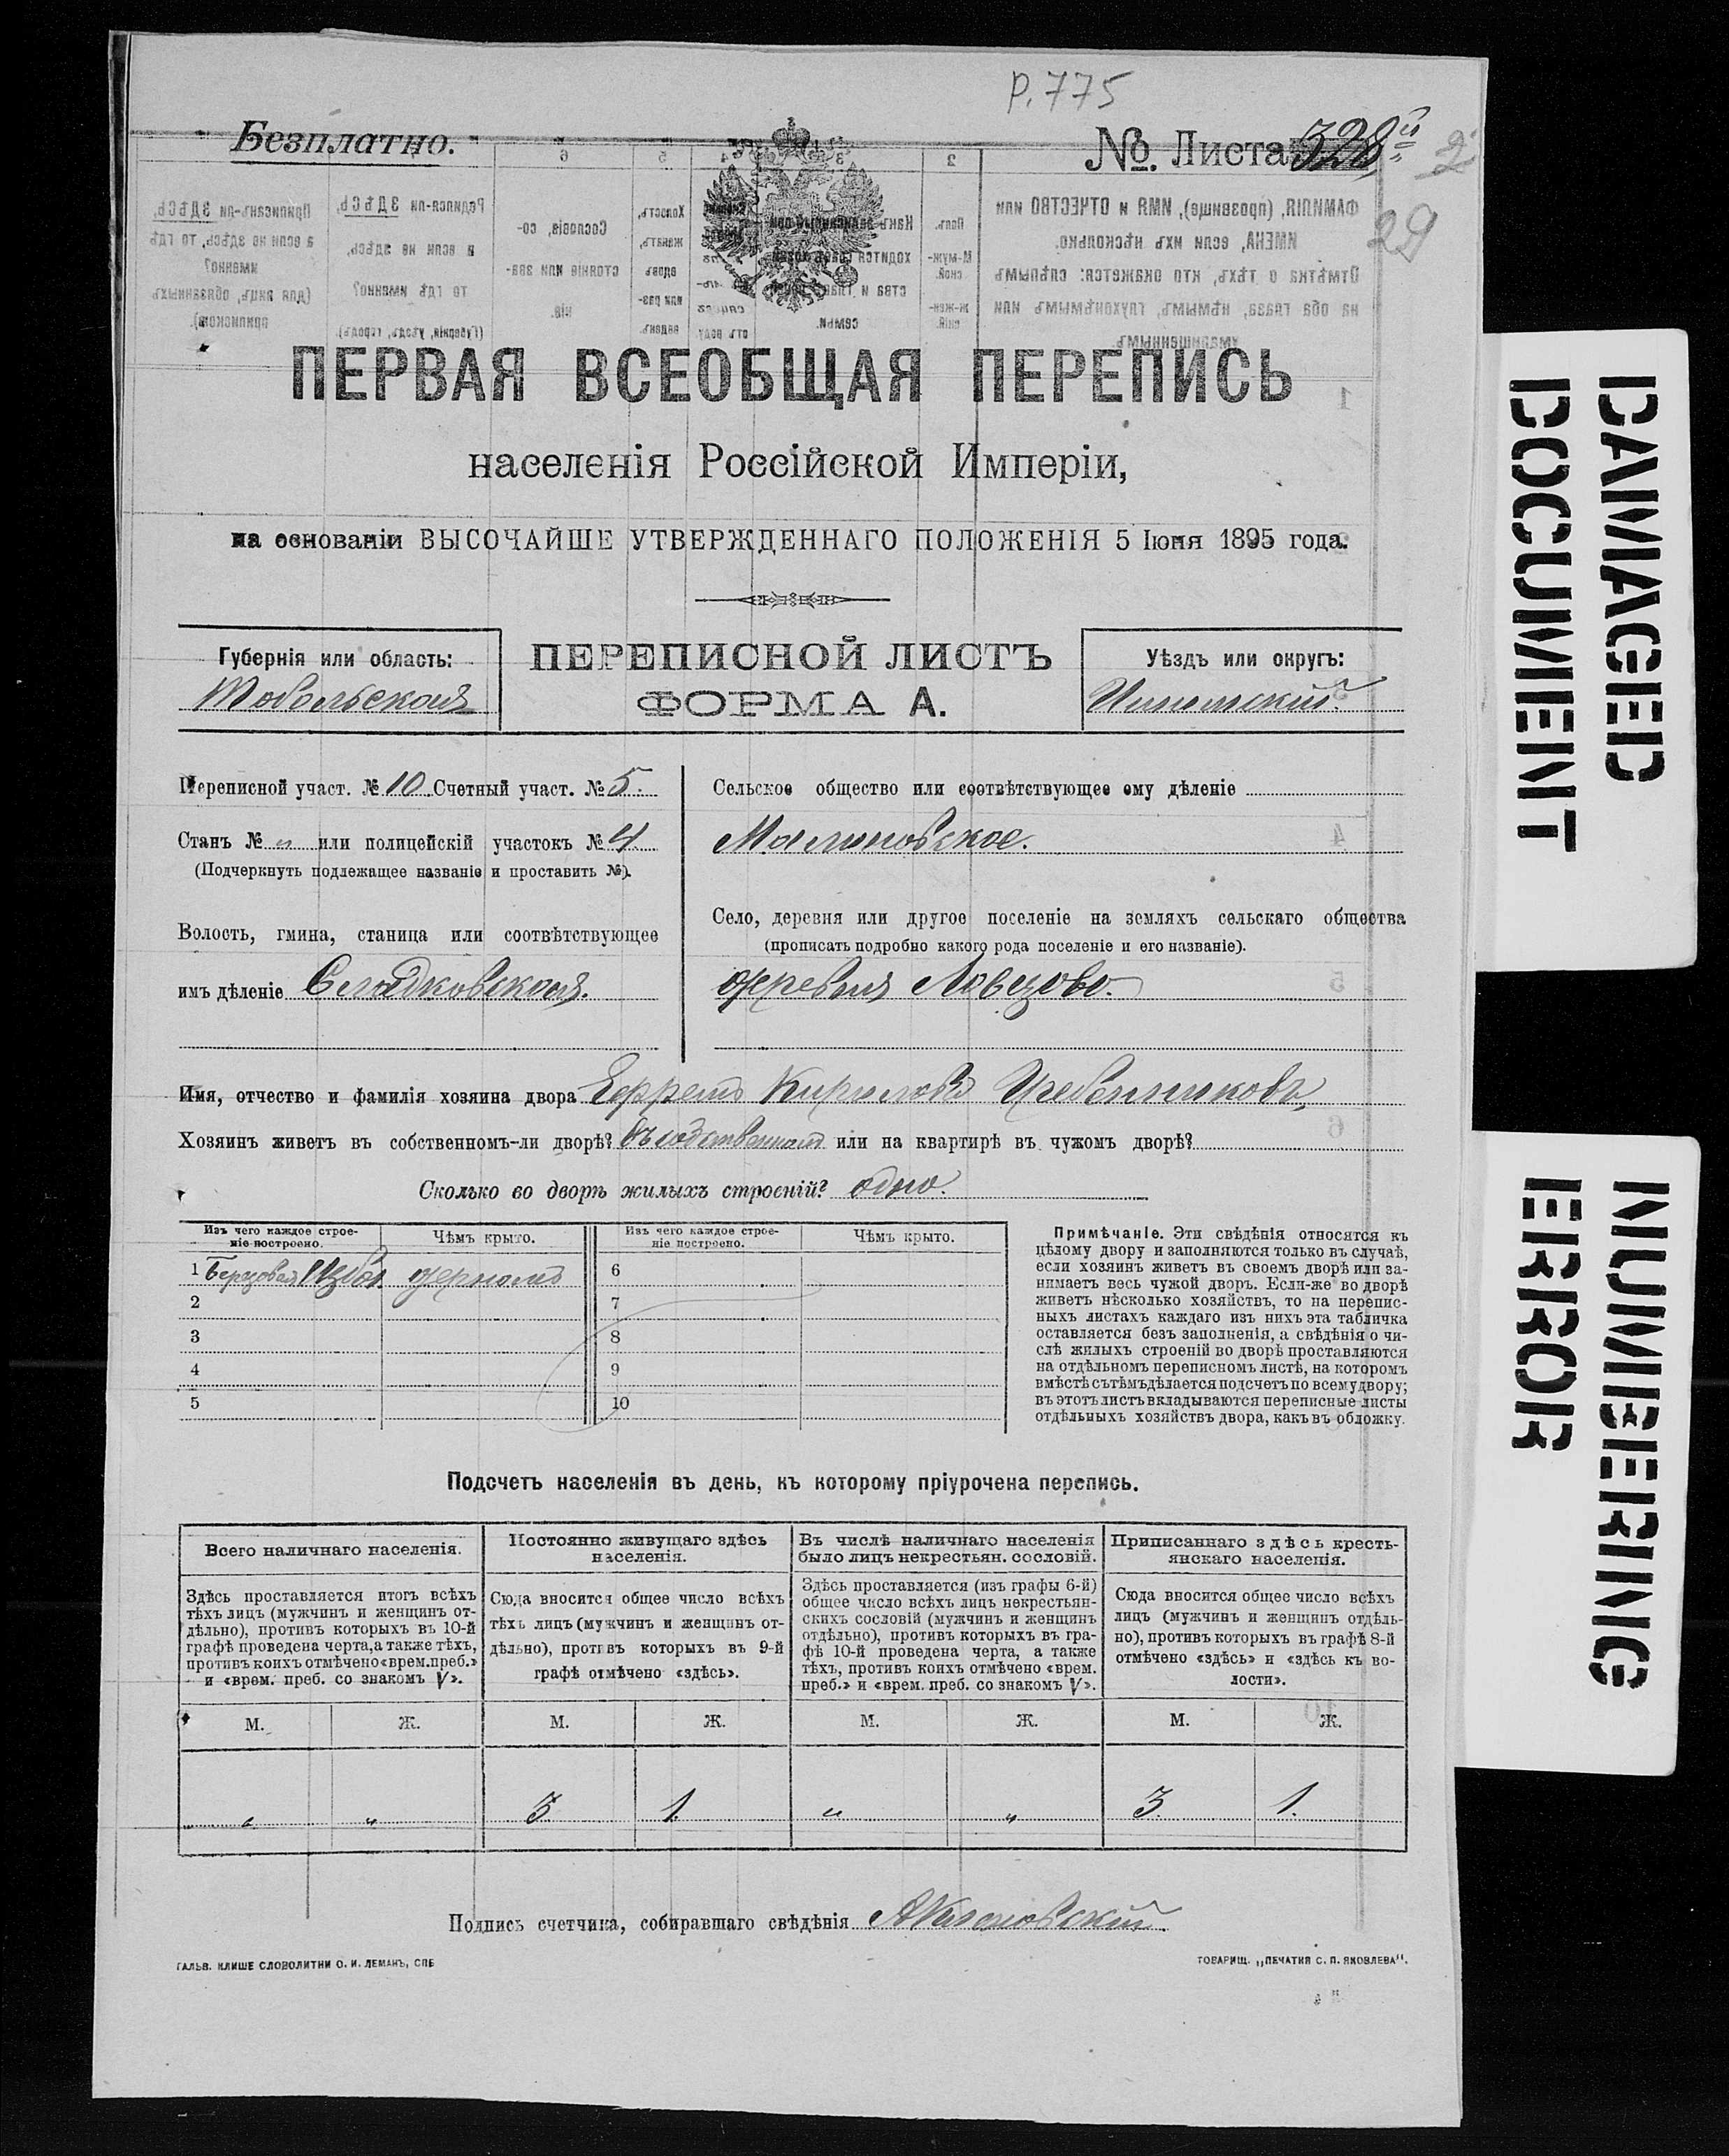 Р. 775
Безплатно.
№. Листа 328й
2
29
ПЕРВАЯ ВСЕОБЩАЯ ПЕРЕПИСЬ
населенія Россійской Имперіи,
на основаніи ВЫСОЧАЙШЕ УТВЕРЖДЕННАГО ПОЛОЖЕНІЯ 5 Іюня 1895 года.
Губернія или область:
Тобольская
ПЕРЕПИСНОЙ ЛИСТЪ
ФОРМА А.
Уѣздъ или округъ:
Ишимскій.
Переписной участ. № 10 Счетный участ. № 5.
Станъ № „ или полицейскій участокъ № 4
(Подчеркнуть подлежащее названіе и проставить №).
Волость, гмина, станица или соотвѣтствующее
имъ дѣленіе Сладковская.
Сельское общество или соотвѣтствующее ему дѣленіе
Малиновское.
Село, деревня или другое поселеніе на земляхъ сельскаго общества
(прописать подробно какого рода поселеніе и его названіе).
деревня Ловцово.
Имя, отчество и фамилія хозяина двора Ефремъ Кириловъ Гребенниковъ,
Хозяинъ живетъ въ собственномъ-ли дворѣ? Въ собственномъ или на квартирѣ въ чужомъ дворѣ?
Сколько во дворѣ жилыхъ строеній? одно.
Изъ чего каждое строе-
ніе построено.
Чѣмъ крыто.
Изъ чего каждое строе-
ніе построено.
Чѣмъ крыто.
1 Березовая Изба дерномъ
2
3
4
5
6
7
8
9
10
Примѣчаніе. Эти свѣдѣнія относятся къ
цѣлому двору и заполняются только въ случаѣ,
если хозяинъ живетъ въ своемъ дворѣ или за-
нимаетъ весь чужой дворъ. Если-же во дворѣ
живетъ нѣсколько хозяйствъ, то на перепис-
ныхъ листахъ каждаго изъ нихъ эта табличка
оставляется безъ заполненія, а свѣдѣнія о чи-
слѣ жилыхъ строеній во дворѣ проставляются
на отдѣльномъ переписномъ листѣ, на которомъ
вмѣстѣ съ тѣмъ дѣлается подсчетъ по всему двору;
въ этотъ листъ вкладываются переписные листы
отдѣльныхъ хозяйствъ двора, какъ въ обложку.
Подсчетъ населенія въ день, къ которому пріурочена перепись.
Всего наличнаго населенія.
Здѣсь проставляется итогъ всѣхъ
тѣхъ лицъ (мужчинъ и женщинъ от-
дѣльно), противъ которыхъ въ 10-й
графѣ проведена черта, а также тѣхъ,
противъ коихъ отмѣчено «врем. преб.»
и «врем. преб. со знакомъ V».
Постоянно живущаго здѣсь
населенія.
Сюда вносится общее число всѣхъ
тѣхъ лицъ (мужчинъ и женщинъ от-
дѣльно), противъ которыхъ въ 9-й
графѣ отмѣчено «здѣсь».
Въ числѣ наличнаго населенія
было лицъ некрестьян. сословій.
Здѣсь проставляется (изъ графы 6-й)
общее число всѣхъ лицъ некрестьян-
скихъ сословій (мужчинъ и женщинъ
отдѣльно), противъ которыхъ въ гра-
фѣ 10-й проведена черта, а также
тѣхъ, противъ коихъ отмѣчено «врем.
преб.» и «врем. преб. со знакомъ V».
Приписаннаго здѣсь кресть-
янскаго населенія.
Сюда вносится общее число всѣхъ
лицъ (мужчинъ и женщинъ отдѣль-
но), противъ которыхъ въ графѣ 8-й
отмѣчено «здѣсь» и «здѣсь къ во-
лости».
М. Ж. М. Ж. М. Ж. М. Ж.
„ „ 3 1. „ „ 3. 1.
Подпись счетчика, собиравшаго свѣдѣнія
ГАЛЬВ. КЛИШЕ СЛОВОЛИТНИ О. И. ЛЕМАНЪ, СПБ
ТОВАРИЩ. „ПЕЧАТНЯ С. П. ЯКОВЛЕВА".
DAMAGED
DOCUMENT
NUMBERING
ERROR